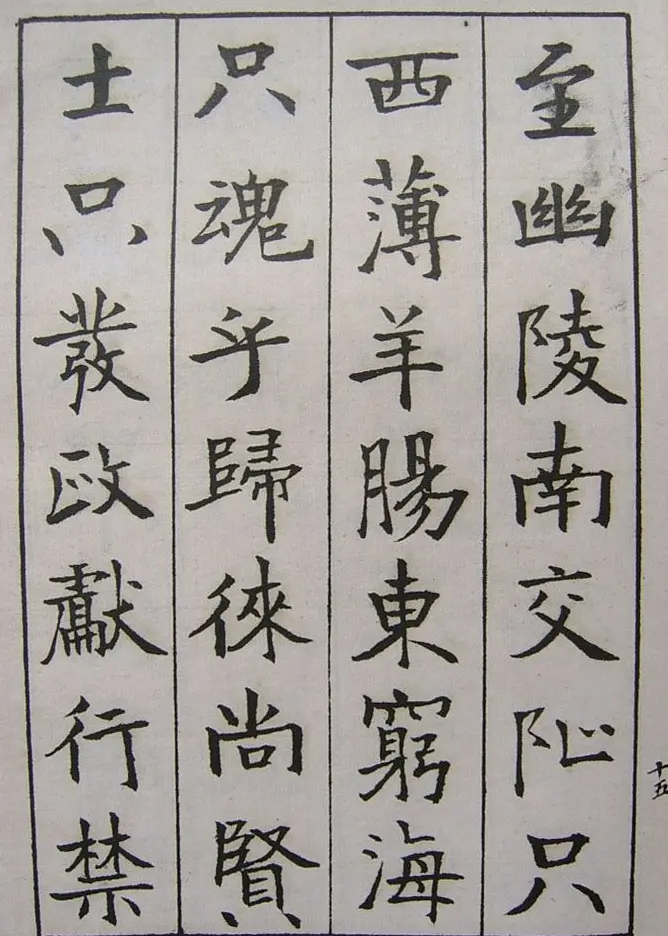 至幽陵南交阯只
西薄羊腸東窮海
只魂乎歸徠尚賢
士只發政獻行禁
十五